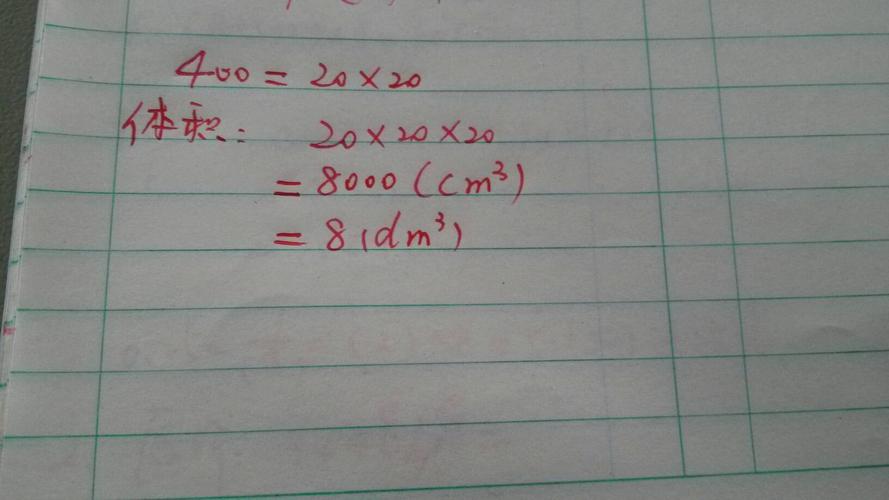 400 = 20 × 20
体积: 20 × 20 × 20
= 8000 (cm³)
= 8 (dm³)